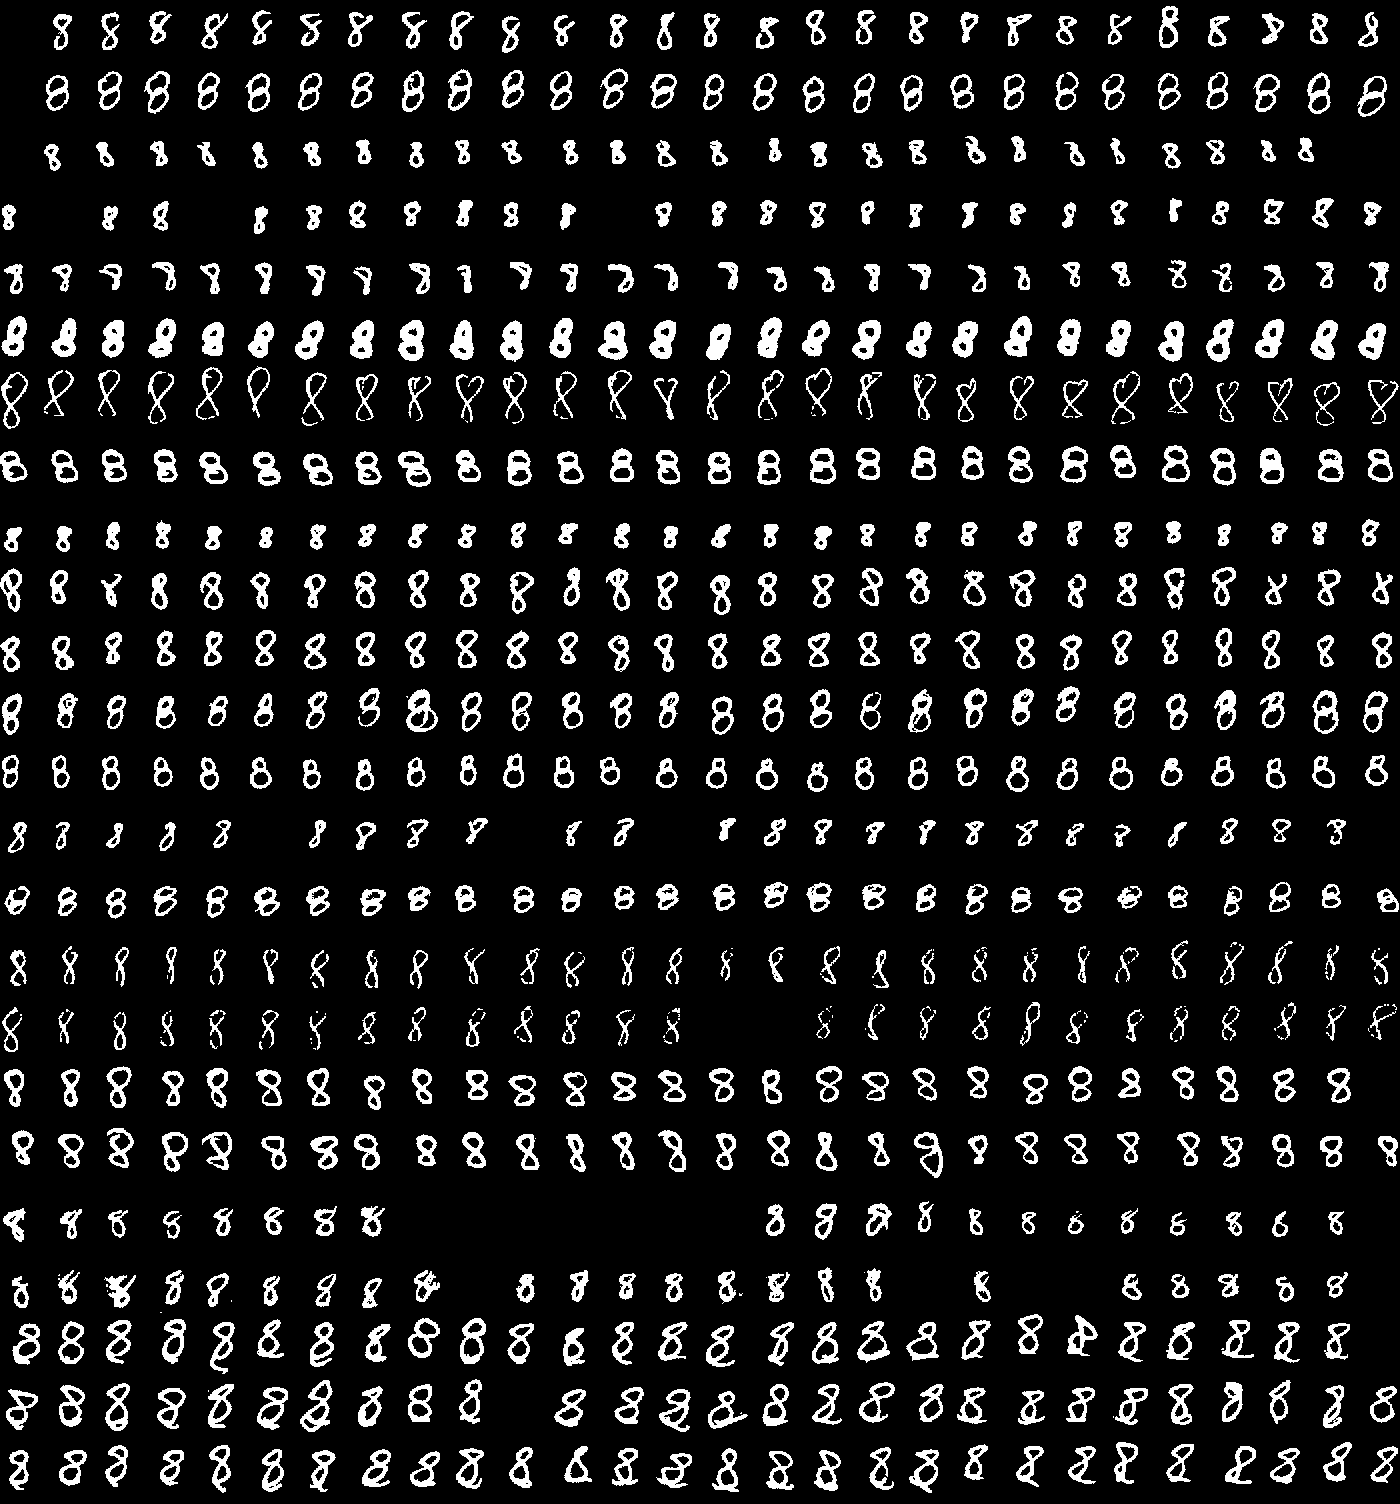 8 8 8 8 8 8 8 8 8 8 8 8 8 8 8 8 8 8 8 8 8 8 8 8 8 8 8
8 8 8 8 8 8 8 8 8 8 8 8 8 8 8 8 8 8 8 8 8 8 8 8 8 8 8
8 8 8 8 8 8 8 8 8 8 8 8 8 8 8 8 8 8 8 8 8 8 8 8 8 8
8 8 8 8 8 8 8 8 8 8 8 8 8 8 8 8 8 8 8 8 8 8 8 8 8
8 8 8 8 8 8 8 8 8 8 8 8 8 8 8 8 8 8 8 8 8 8 8 8 8 8 8 8
8 8 8 8 8 8 8 8 8 8 8 8 8 8 8 8 8 8 8 8 8 8 8 8 8 8 8 8
8 8 8 8 8 8 8 8 8 8 8 8 8 8 8 8 8 8 8 8 8 8 8 8 8 8 8 8
8 8 8 8 8 8 8 8 8 8 8 8 8 8 8 8 8 8 8 8 8 8 8 8 8 8 8 8
8 8 8 8 8 8 8 8 8 8 8 8 8 8 8 8 8 8 8 8 8 8 8 8 8 8 8 8
8 8 8 8 8 8 8 8 8 8 8 8 8 8 8 8 8 8 8 8 8 8 8 8 8 8 8 8
8 8 8 8 8 8 8 8 8 8 8 8 8 8 8 8 8 8 8 8 8 8 8 8 8 8 8 8
8 8 8 8 8 8 8 8 8 8 8 8 8 8 8 8 8 8 8 8 8 8 8 8 8 8 8 8
8 8 8 8 8 8 8 8 8 8 8 8 8 8 8 8 8 8 8 8 8 8 8 8 8 8 8 8
8 8 8 8 8 8 8 8 8 8 8 8 8 8 8 8 8 8 8 8 8 8 8 8
8 8 8 8 8 8 8 8 8 8 8 8 8 8 8 8 8 8 8 8 8 8 8 8 8 8 8 8
8 8 8 8 8 8 8 8 8 8 8 8 8 8 8 8 8 8 8 8 8 8 8 8 8 8 8 8
8 8 8 8 8 8 8 8 8 8 8 8 8 8 8 8 8 8 8 8 8 8 8 8 8 8
8 8 8 8 8 8 8 8 8 8 8 8 8 8 8 8 8 8 8 8 8 8 8 8 8 8 8
8 8 8 8 8 8 8 8 8 8 8 8 8 8 8 8 8 8 8 8 8 8 8 8 8 8 8 8
8 8 8 8 8 8 8 8 8 8 8 8 8 8 8 8 8 8 8 8
8 8 8 8 8 8 8 8 8 8 8 8 8 8 8 8 8 8 8 8 8 8 8
8 8 8 8 8 8 8 8 8 8 8 8 8 8 8 8 8 8 8 8 8 8 8 8 8 8 8
8 8 8 8 8 8 8 8 8 8 8 8 8 8 8 8 8 8 8 8 8 8 8 8 8 8 8
8 8 8 8 8 8 8 8 8 8 8 8 8 8 8 8 8 8 8 8 8 8 8 8 8 8 8 8